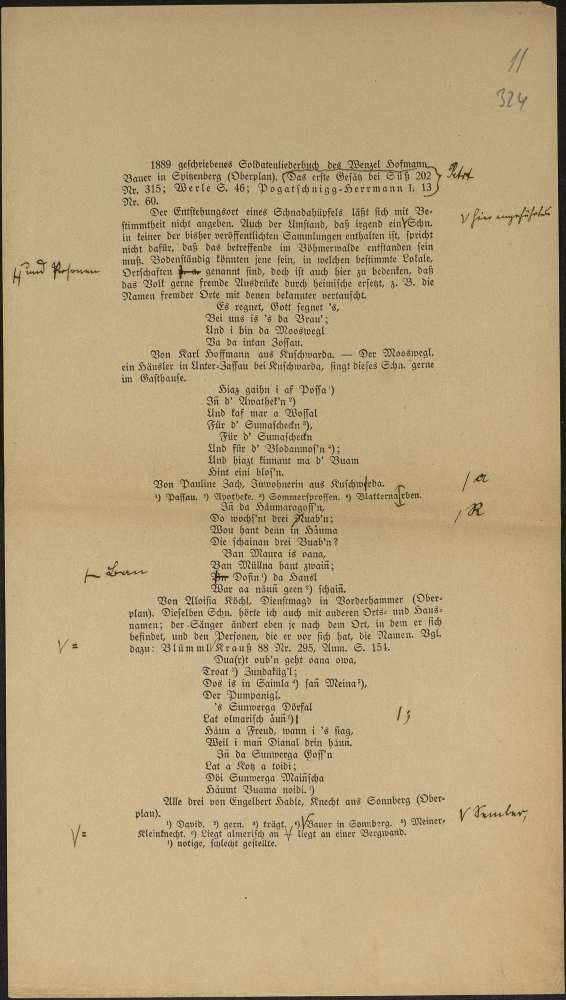 11
324
1889 geschriebenes Soldatenliederbuch des Wenzel Hofmann
Bauer in Spitzenberg (Oberplan). (Das erste Gesätz bei Süß 202
Nr. 315; Werle S. 46; Pogatschnigg-Herrmann I. 13
Nr. 60.
Der Entstehungsort eines Schnadahüpfels läßt sich mit Be-
stimmtheit nicht angeben. Auch der Umstand, daß irgend ein Schn.
hier angeführtes
in keiner der bisher veröffentlichten Sammlungen enthalten ist, spricht
nicht dafür, daß das betreffende im Böhmerwalde entstanden sein
muß. Bodenständig könnten jene sein, in welchen bestimmte Lokale,
und Personen
Ortschaften genannt sind, doch ist auch hier zu bedenken, daß
das Volk gerne fremde Ausdrücke durch heimische ersetzt, z. B. die
Namen fremder Orte mit denen bekannter vertauscht.
Es regnet, Gott segnet 's,
Bei uns is 's da Brau';
Und i bin da Mooswegl
Va da intan Zossau.
Von Karl Hoffmann aus Kuschwarda. — Der Mooswegl,
ein Häusler in Unter-Zassau bei Kuschwarda, singt dieses Schn. gerne
im Gasthause.
Hiaz gaihn i af Possa ¹)
In̄ d' Awathek'n ²)
Und kaf mar a Wossal
Für d' Sumaschedn ³),
Für d' Sumaschedn
Und für d' Blodanmos'n ⁴);
Und hiazt kinnant ma d' Buam
Hint eini blos'n.
Von Pauline Zach, Inwohnerin aus Kuschwerda.
a
¹) Passau. ²) Apotheke. ³) Sommersprossen. ⁴) Blatternarben.
In̄ da Háumaragoss'n,
R
Do wochs'nt drei Ruab'n;
Wou hant denn in Háuma
Die schainan drei Buab'n?
Ban Maura is oana,
Ban Müllna hant zwain̄;
Ban
Dosin ¹) da Hansl
War aa náun̄ geen ²) schain̄.
Von Aloisia Köchl, Dienstmagd in Vorderhammer (Ober-
plan). Dieselben Schn. hörte ich auch mit anderen Orts- und Haus-
namen; der Sänger ändert eben je nach dem Ort, in dem er sich
befindet, und den Personen, die er vor sich hat, die Namen. Vgl.
dazu: Blümml Krauß 88 Nr. 295, Anm. S. 154.
Dua(r)t oub'n geht oana owa,
Troat ³) Zundaküg'l;
Dos is in Saimla ⁴) san̄ Meina ⁵),
Der Pumpanigl.
's Sunwerga Dörfal
Lat olmarisch áun̄ ⁶)
;
Háun a Freud, wann i 's siag,
Weil i man̄ Dianal drin háun.
In̄ da Sunwerga Goss'n
Lat a Kotz a toidi;
Döi Sunwerga Main̄scha
Háumt Buama noidi. ⁷)
Alle drei von Engelbert Hable, Knecht aus Sonnberg (Ober-
plan).
Semler,
¹) David. ²) gern. ³) trägt. ⁴) Bauer in Sonnberg. ⁵) Meiner-
Kleinknecht. ⁶) Liegt almerisch an liegt an einer Bergwand.
=
⁷) notige, schlecht gestellte.